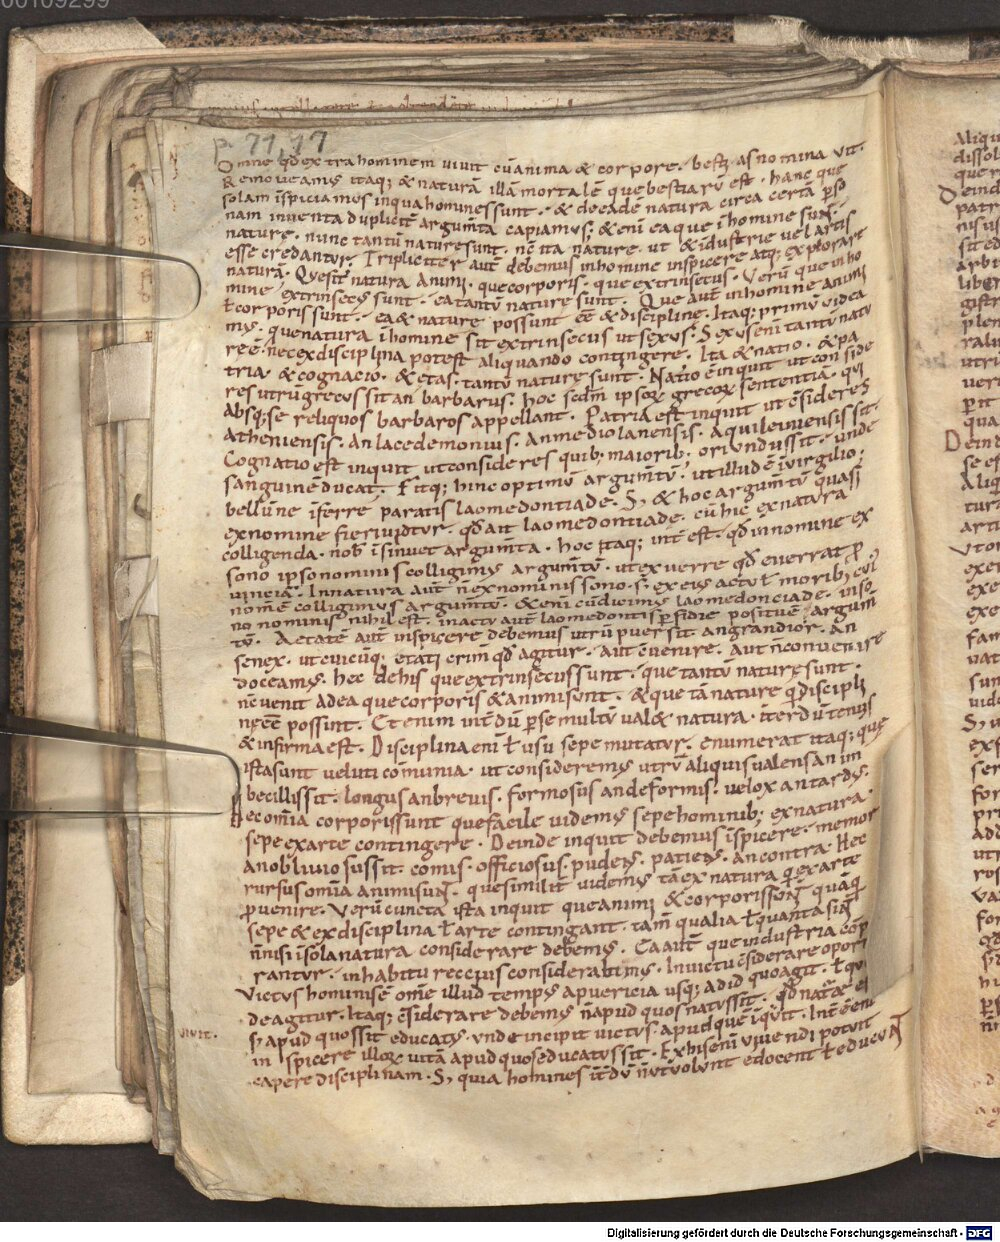 00109299
p. 71,17
Omne qđ extra hominem vivit cū anima & corpore. besti as nomina vit.
Removeamus itaq; & naturā illā mortalē que bestiarū est. hanc que
solam īspiciamus in qua homines sunt. & de eadē natura circa certā pso
nam inventa dupliciť argumta capiamus. & eni ea que ī homine sunt
nature. nunc tantū nature sunt. nc̄ ita nature. ut & idustrie vel artis
esse credantur. Tripliciter aut̄ debemus in homine inspicere atq; explorare
naturā. Que sit natura animi. que corporis. que extrinsecus. Verū que in ho
mine extrinsecus sunt. ea tantū nature sunt. Que aut̄ in homine animi
ł corporis sunt. ea & nature possunt eē & discipline. Itaq; primū videa
mus. que natura ī homine sit extrinsecus ut sexus. Sexus eni tantū natu
re ē. nec ex disciplina potest aliquando contingere. Ita & natio. & pa
tria. & cognacio. & etas. tantū nature sunt. Natio ē inquit ut con side
res utrū grecus sit an barbarus. hoc scdm ipsoꝝ grecoꝝ sententiā. qui
absq; se reliquos barbaros appellant. Patria est inquit ut c̄sideres
Atheniensis. an lacedemonius. an mediolanensis. aquileiuiensis sit.
Cognatio est inquit ut consideres quib; maiorib; oriundus sit. unde
sanguinē ducat. Fitq; hinc optimū argumtū. ut illud ē ī virgilio;
bellūne īferre paratis laomedontiade. S; & hoc argumtū quasi
ex nomine fieri videtur. qđ ait laomedontiade. cū hic ex natura
colligenda. nob īsinuet argumta. hoc itaq; int̄ est. qđ in nomine ex
sono ipso nominis colligimus argumtū. ut ex verre qđ everrat p
vinciā. In natura aut̄ n̄ ex nominis sono. s; ex eius actu ł morib; cui
nomē colligimus argumtū. & eni cū dicimus laomedonciade. in so
no nominis nihil est. in actu aut̄ laomedontis pfidie positum ē argum
tū. Aetatē aut̄ inspicere debemus utrū puer sit an grandior. an
senex. ut cuicūq; etati crim̄ qđ agitur. aut c̄venire. aut n̄ convenire
doceamus. hec de his que extrinsecus sunt. que tantū nature sunt.
nc̄ venit ad ea que corporis & animi sunt. & que tā nature q̄ discipli
ne eē possint. Et enim int̄dū pse multū val& natura. īterdū tenuis
& infirma est. Disciplina eni ł usu sepe mutatur. enumerat itaq; que
ista sunt veluti cōmunia. ut consideremus utrū aliquis valens an im
becillis sit. longus an brevis. formosus an deformis. velox an tardus.
hec omia corporis sunt que facile videmus sepe hominib; ex natura.
sepe ex arte contingere. Deinde inquit debemus īspicere. memor
an obliviosus sit. comis. officiosus. pudens. patiens. an contra. Hec
rursus omia animi sunt. que similiť videmus tā ex natura q̄ ex arte
pvenire. Verū cuncta ista inquit que animi & corporis sunt quāq̄
sepe & ex disciplina ł arte contingant. tam̄ qualia ł quanta sint
n̄nisi ī sola natura considerare debemus. Ea aut̄ que industria cōp
rantur. in habitu recejus considerabimus. In victu c̄siderare opori
Victus hominis ē ome illud tempus a puericia usq; ad id quo agit. ł quo
de agitur. Itaq; c̄siderare debemus n̄ apud quos natus sit. qđ nature ē
vivit. s; apud quos sit educatus. unde incipit victus. apud quē īquit. Int̄ c̄ eni
in īspicere illoꝝ vitā apud quos educatus sit. Ex his eni vivendi potuit
capere disciplinam. S; quia homines īt̄dū n̄ ut volunt edocent ł educunt
Digitalisierung gefördert durch die Deutsche Forschungsgemeinschaft - DFG